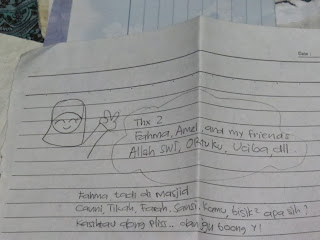 Date :
Thx 2
Fahma, Amel, and my friends
Allah SWT, Ortuku, Uciba, dll..
Fahma tadi di Masjid
Tikah, Farah, Sausi, Kamu, bisik² apa sih?
Kasihtau dong Pliss.. dan gu boong y!